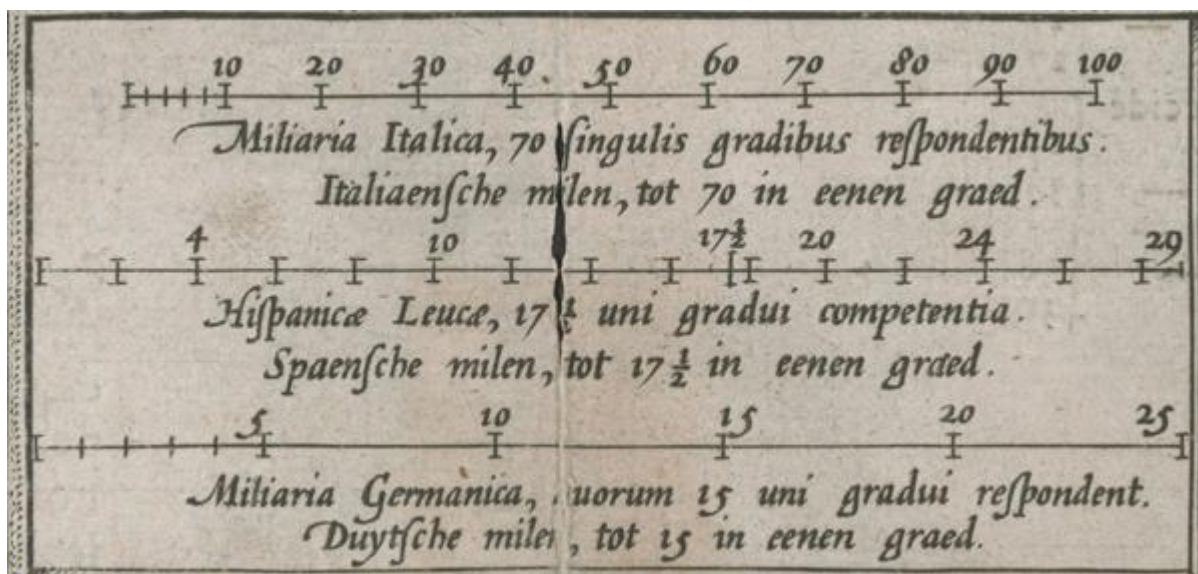 10 20 30 40 50 60 70 80 90 100
Miliaria Italica, 70 ſingulis gradibus reſpondentibus.
Italiaenſche milen, tot 70 in eenen graed.
4 10 17½ 20 24 29
Hiſpanicæ Leucæ, 17½ uni gradui competentia.
Spaenſche milen, tot 17½ in eenen graed.
5 10 15 20 25
Miliaria Germanica, uorum 15 uni gradui reſpondent.
Duytſche milen, tot 15 in eenen graed.